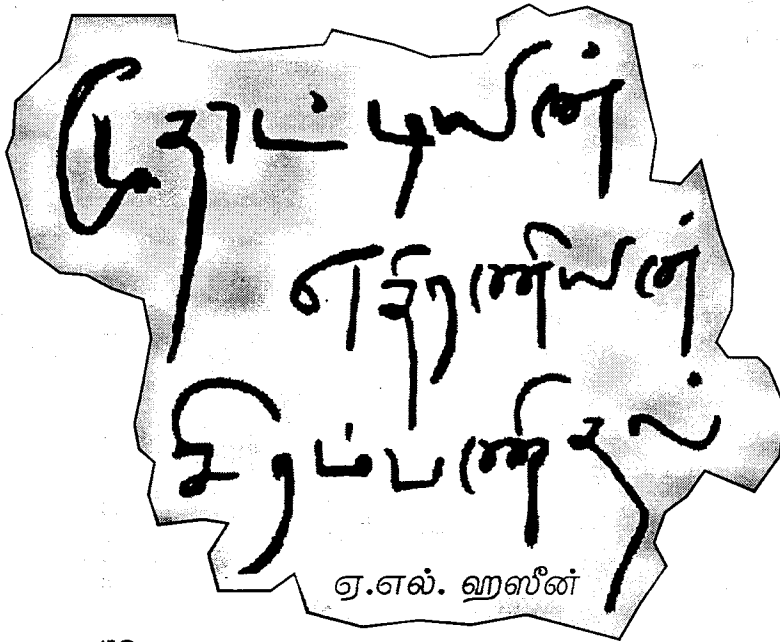 மூதாட்டியின்
எதிரணியின்
சிரம்பணிதல்
ஏ.எல். ஹஸீன்